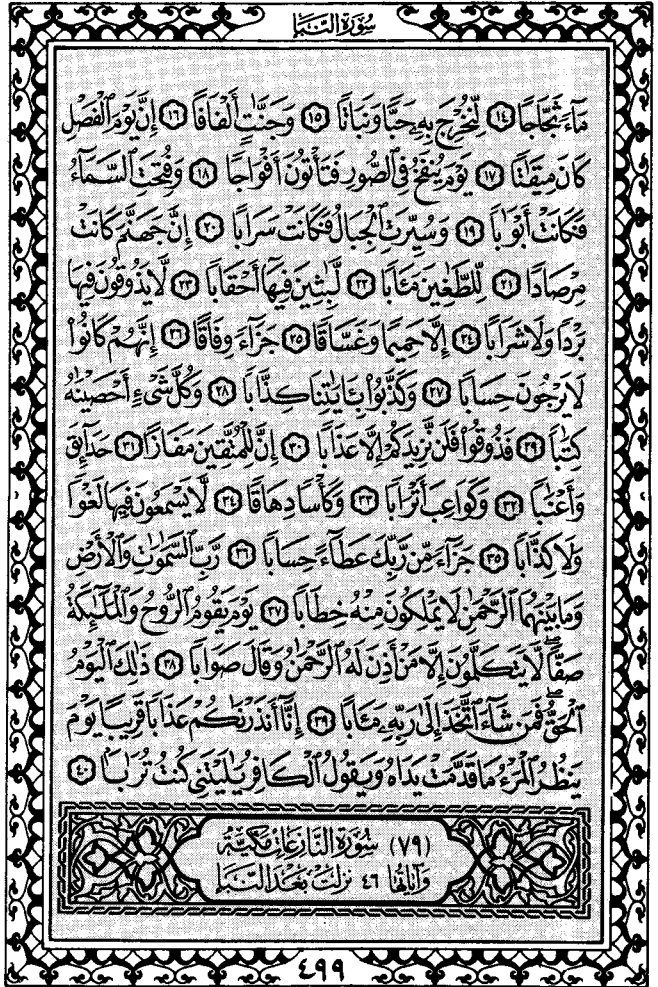 سُورَةُ النَّبَإِ
مَآءً ثَجَّاجًا ١٤ لِّنُخْرِجَ بِهِۦ حَبًّا وَنَبَاتًا ١٥ وَجَنَّٰتٍ أَلْفَافًا ١٦ إِنَّ يَوْمَ ٱلْفَصْلِ
كَانَ مِيقَٰتًا ١٧ يَوْمَ يُنفَخُ فِي ٱلصُّورِ فَتَأْتُونَ أَفْوَاجًا ١٨ وَفُتِحَتِ ٱلسَّمَآءُ
فَكَانَتْ أَبْوَٰبًا ١٩ وَسُيِّرَتِ ٱلْجِبَالُ فَكَانَتْ سَرَابًا ٢٠ إِنَّ جَهَنَّمَ كَانَتْ
مِرْصَادًا ٢١ لِّلطَّٰغِينَ مَـَٔابًا ٢٢ لَّٰبِثِينَ فِيهَآ أَحْقَابًا ٢٣ لَّا يَذُوقُونَ فِيهَا
بَرْدًا وَلَا شَرَابًا ٢٤ إِلَّا حَمِيمًا وَغَسَّاقًا ٢٥ جَزَآءً وِفَاقًا ٢٦ إِنَّهُمْ كَانُوا۟
لَا يَرْجُونَ حِسَابًا ٢٧ وَكَذَّبُوا۟ بِـَٔايَٰتِنَا كِذَّابًا ٢٨ وَكُلَّ شَىْءٍ أَحْصَيْنَٰهُ
كِتَٰبًا ٢٩ فَذُوقُوا۟ فَلَن نَّزِيدَكُمْ إِلَّا عَذَابًا ٣٠ إِنَّ لِلْمُتَّقِينَ مَفَازًا ٣١ حَدَآئِقَ
وَأَعْنَٰبًا ٣٢ وَكَوَاعِبَ أَتْرَابًا ٣٣ وَكَأْسًا دِهَاقًا ٣٤ لَّا يَسْمَعُونَ فِيهَا لَغْوًا
وَلَا كِذَّٰبًا ٣٥ جَزَآءً مِّن رَّبِّكَ عَطَآءً حِسَابًا ٣٦ رَّبِّ ٱلسَّمَٰوَٰتِ وَٱلْأَرْضِ
وَمَا بَيْنَهُمَا ٱلرَّحْمَٰنِ لَا يَمْلِكُونَ مِنْهُ خِطَابًا ٣٧ يَوْمَ يَقُومُ ٱلرُّوحُ وَٱلْمَلَٰٓئِكَةُ
صَفًّا لَّا يَتَكَلَّمُونَ إِلَّا مَنْ أَذِنَ لَهُ ٱلرَّحْمَٰنُ وَقَالَ صَوَابًا ٣٨ ذَٰلِكَ ٱلْيَوْمُ
ٱلْحَقُّ فَمَن شَآءَ ٱتَّخَذَ إِلَىٰ رَبِّهِۦ مَـَٔابًا ٣٩ إِنَّآ أَنذَرْنَٰكُمْ عَذَابًا قَرِيبًا يَوْمَ
يَنظُرُ ٱلْمَرْءُ مَا قَدَّمَتْ يَدَاهُ وَيَقُولُ ٱلْكَافِرُ يَٰلَيْتَنِى كُنتُ تُرَٰبًۢا ٤٠
(٧٩) سُورَةُ النَّازِعَاتِ مَكِّيَّةٌ
وَآيَاتُهَا ٤٦ نَزَلَتْ بَعْدَ النَّبَإِ
٤٩٩